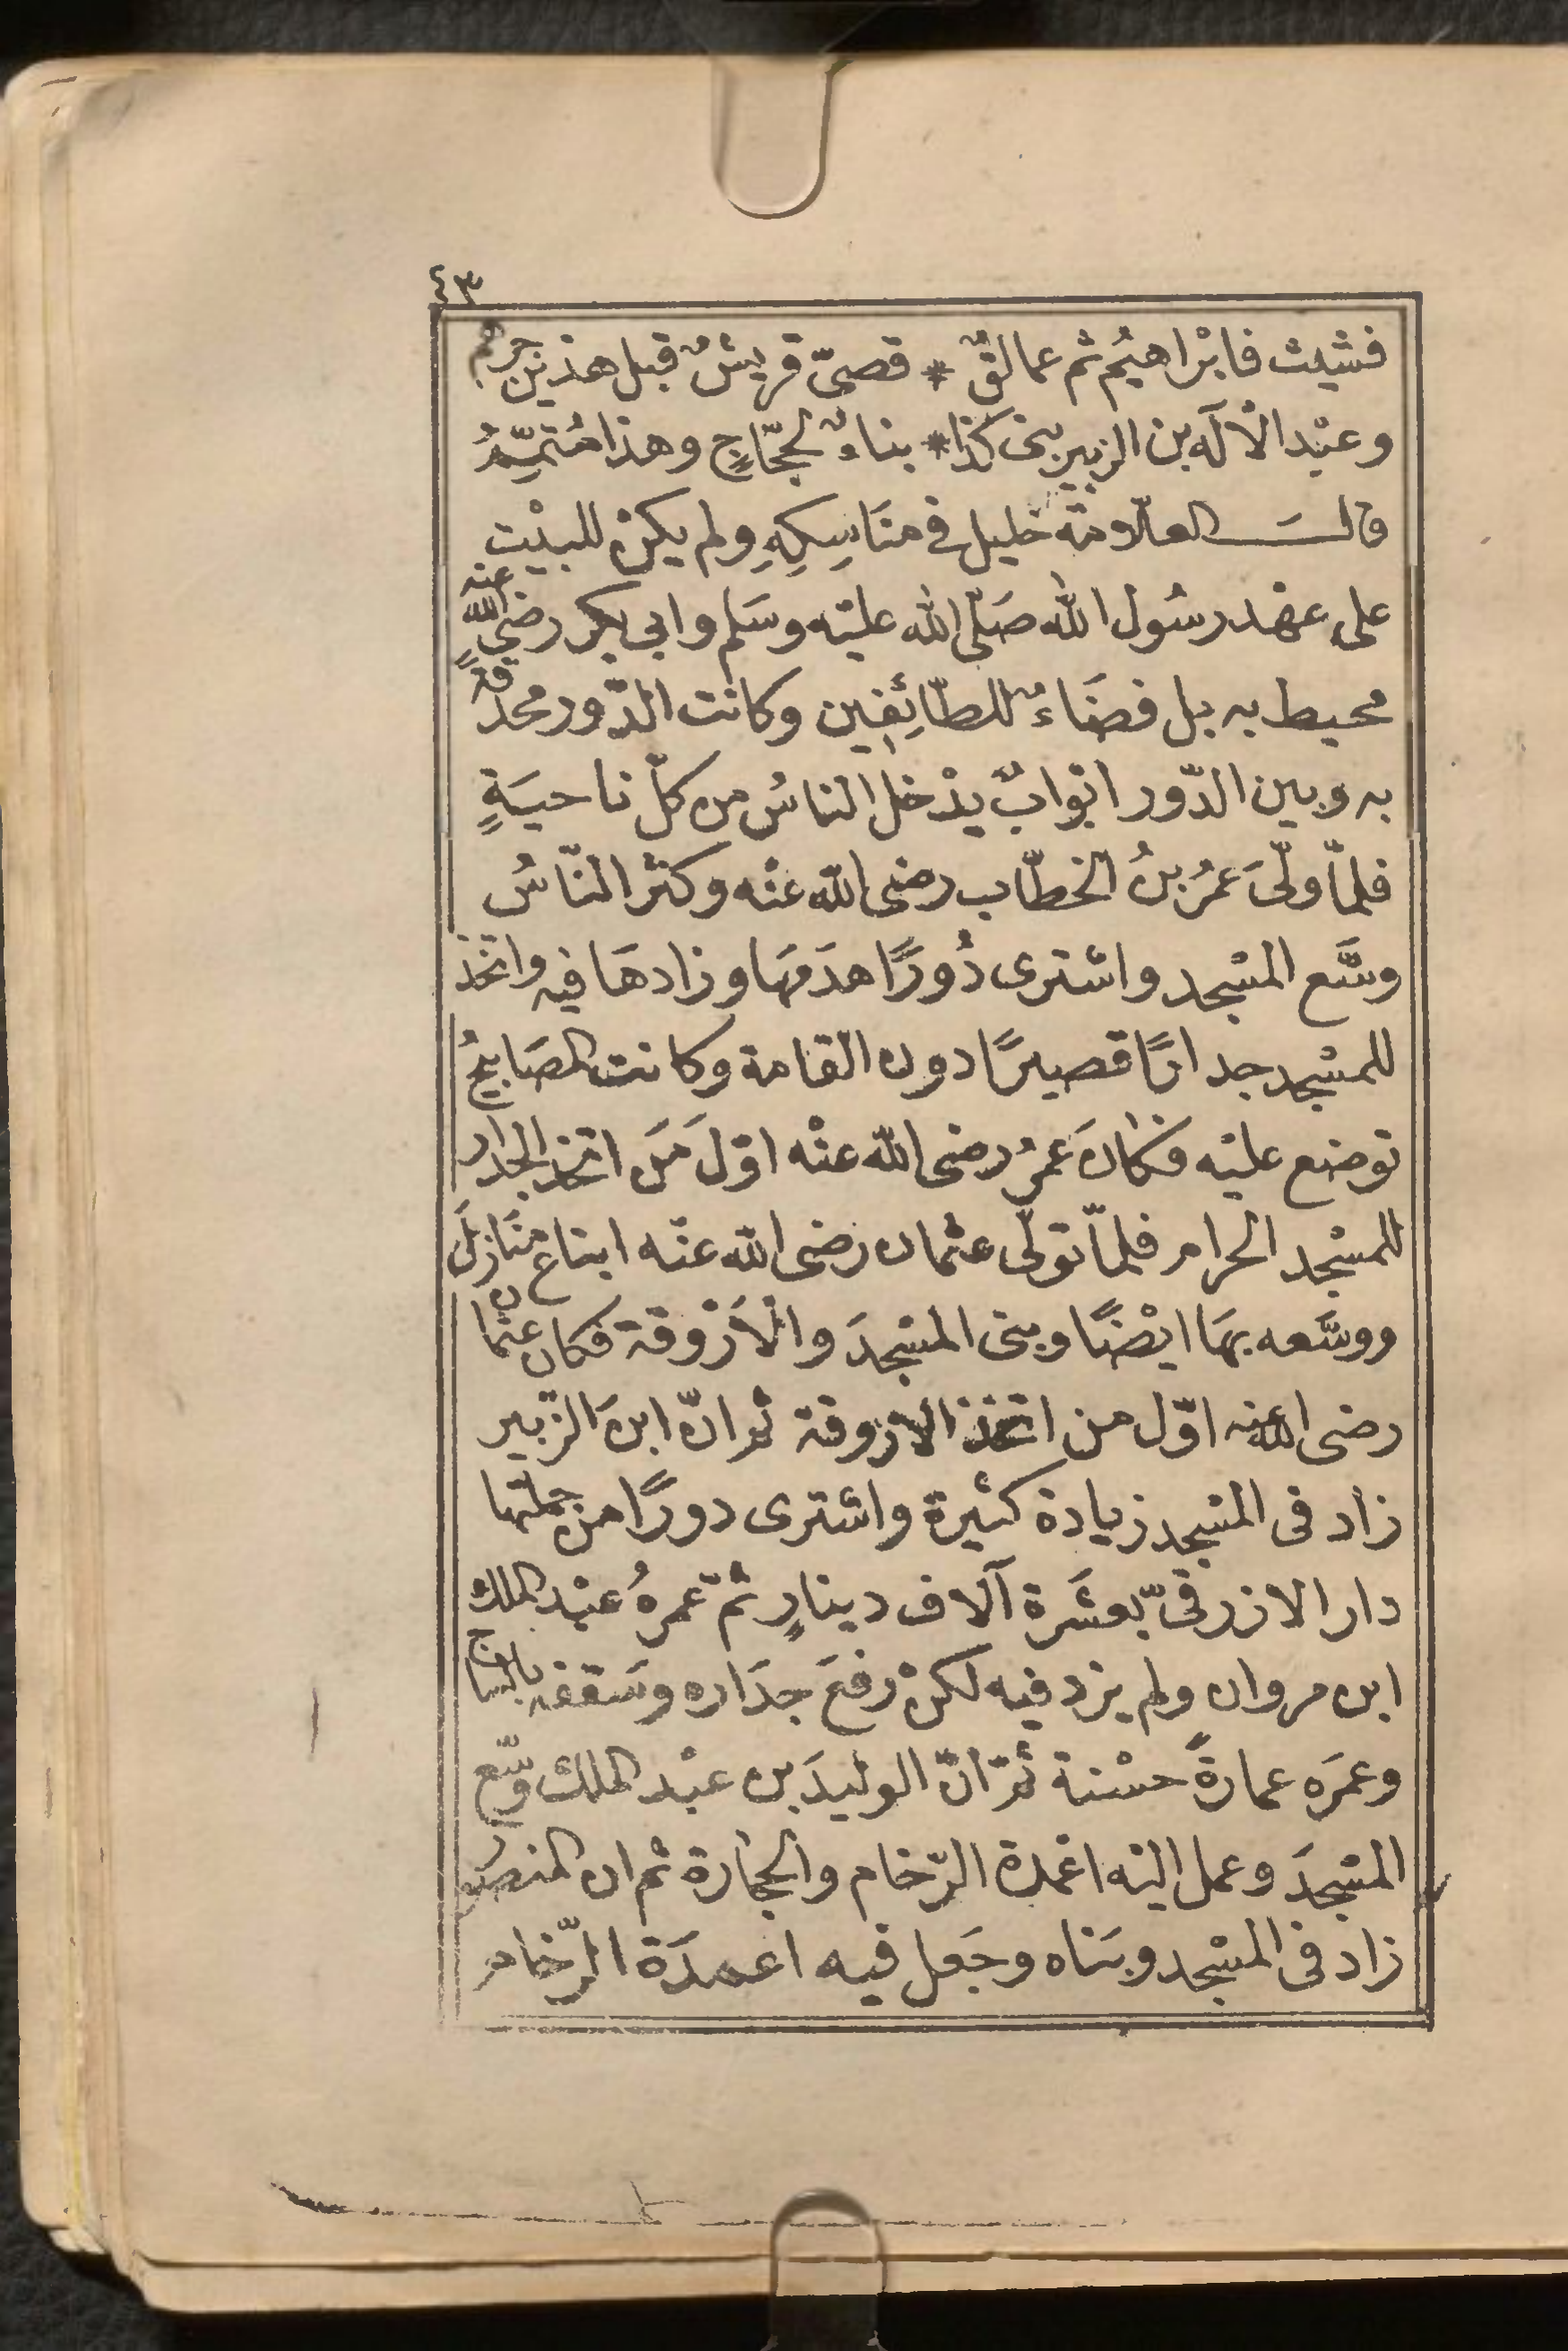 ٤٣
فشيث فابْراهيُم ثم عمالقٌ * قصىّ قريشٌ قبل هذين جرهم
وعبْد الْاله بن الزبير بنى كذا * بناءٌ لحجّاجٍ وهذا مُتمّمُ
قالَ العلّامة خليل فى منَاسِكِهِ ولم يكنْ للبيْت
على عهْد رسُول الله صَلّى الله عليْه وسَلم وابى بكر رضى الله عنه
محيط به بل فضَاءٌ للطّائِفِين وكانت الدّور محدقةً
به وبين الدّور ابْوابٌ يدْخل الناسُ من كلّ ناحيَةٍ
فلمّا ولّىَ عمرُ بنُ الخطّاب رضى الله عنْه وكثر النّاسُ
وسَّع المسْجد واشترى دُورًا هدَمهَا وزادهَا فيه واتخذ
للمسْجد جدارًا قصيرًا دون القامة وكانت المصَابيحُ
توضع عليْه فكانَ عمرُ رضى الله عنْه اوّلَ مَن اتخذ الجدار
للمسْجد الحرام فلمّا تولّى عثمان رضى الله عنْه ابتاع منَازلَ
ووسَّعه بهَا ايْضًا وبنى المسْجدَ والْاَرْوقة فكان عثمان
رضى الله عنه اوّل من اتخذ الاروقة ثم انّ ابنَ الزّبير
زاد فى المسْجد زيادة كثيرة واشترى دورًا من جملتها
دار الازرقىّ بعشَرة آلاف دينارٍ ثمّ عمرهُ عبْد الملك
ابن مروان ولم يزد فيه لكنْ رفعَ جدَاره وسَقفه بالساج
وعمَره عمارةً حسْنة ثمّ انّ الوليدَ بن عبْد الملك وسّع
المسْجدَ وعمل اليْه اعْمدة الرّخام والحجارة ثم ان المنصُور
زاد فى المسْجد وبنَاه وجَعل فيه اعمدَة الرّخام